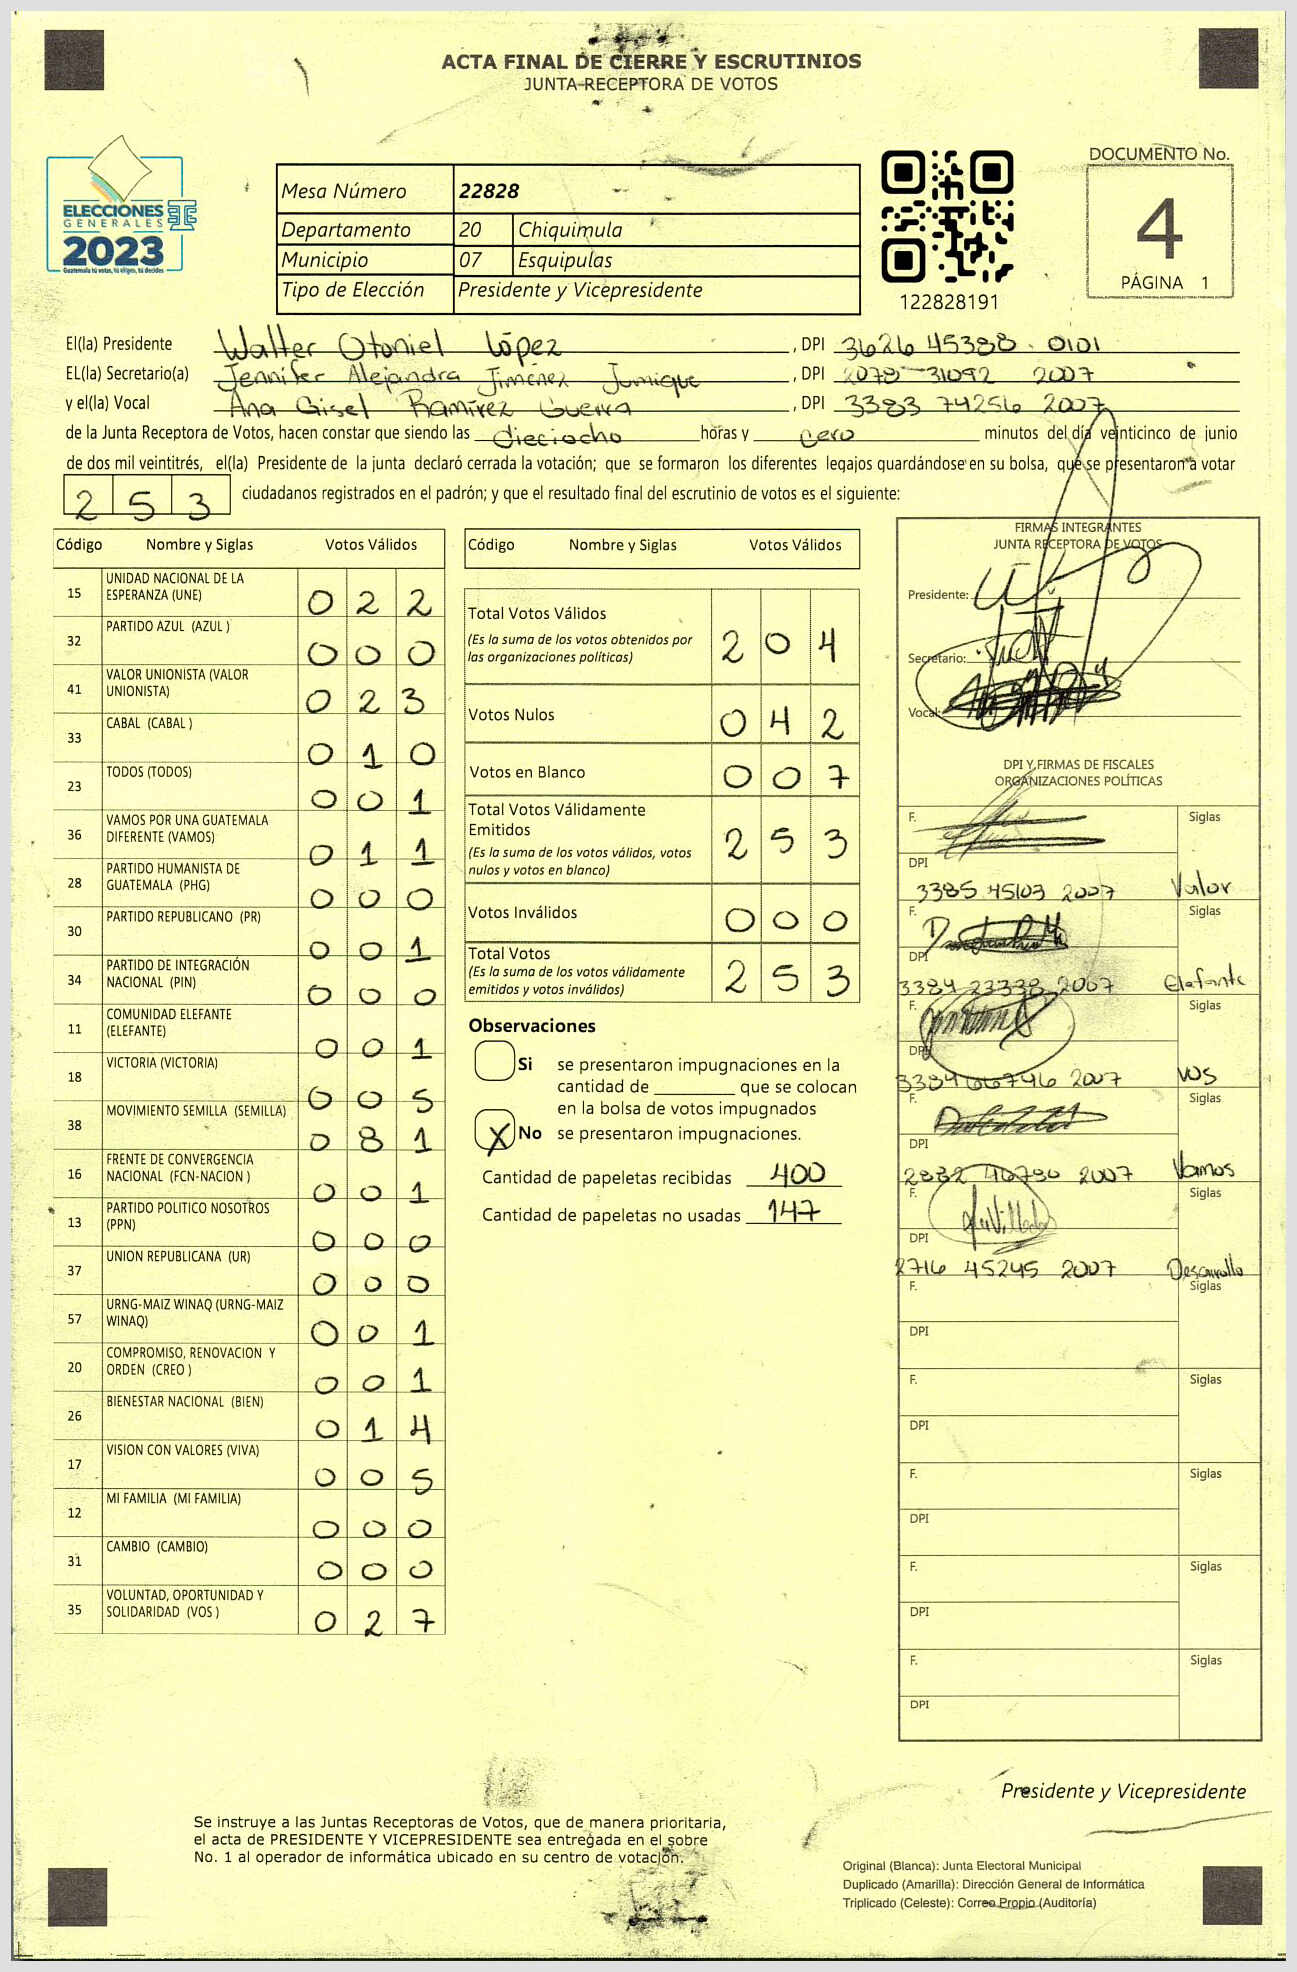 ACTA FINAL DE CIERRE Y ESCRUTINIOS
JUNTA RECEPTORA DE VOTOS
ELECCIONES
GENERALES
2023
Guatemala tú votas, tú eliges, tú decides
Mesa Número 22828
Departamento 20 Chiquimula
Municipio 07 Esquipulas
Tipo de Elección Presidente y Vicepresidente
122828191
DOCUMENTO No.
4
PÁGINA 1
El(la) Presidente Walter Otoniel López , DPI 3626 45388 0101
EL(la) Secretario(a) Jennifer Alejandra Jiménez , DPI 2078 31092 2007
y el(la) Vocal Ana Gisel Ramírez Guerra , DPI 3383 74256 2007
de la Junta Receptora de Votos, hacen constar que siendo las dieciocho horas y cero minutos del día veinticinco de junio
de dos mil veintitrés, el(la) Presidente de la junta declaró cerrada la votación; que se formaron los diferentes legajos guardándose en su bolsa, que se presentaron a votar
253 ciudadanos registrados en el padrón; y que el resultado final del escrutinio de votos es el siguiente:
Código Nombre y Siglas Votos Válidos
15 UNIDAD NACIONAL DE LA ESPERANZA (UNE) 022
32 PARTIDO AZUL (AZUL ) 000
41 VALOR UNIONISTA (VALOR UNIONISTA) 023
33 CABAL (CABAL ) 010
23 TODOS (TODOS) 001
36 VAMOS POR UNA GUATEMALA DIFERENTE (VAMOS) 011
28 PARTIDO HUMANISTA DE GUATEMALA (PHG) 000
30 PARTIDO REPUBLICANO (PR) 001
34 PARTIDO DE INTEGRACIÓN NACIONAL (PIN) 000
11 COMUNIDAD ELEFANTE (ELEFANTE) 001
18 VICTORIA (VICTORIA) 005
38 MOVIMIENTO SEMILLA (SEMILLA) 081
16 FRENTE DE CONVERGENCIA NACIONAL (FCN-NACION ) 001
13 PARTIDO POLITICO NOSOTROS (PPN) 000
37 UNION REPUBLICANA (UR) 000
57 URNG-MAIZ WINAQ (URNG-MAIZ WINAQ) 001
20 COMPROMISO, RENOVACION Y ORDEN (CREO ) 001
26 BIENESTAR NACIONAL (BIEN) 014
17 VISION CON VALORES (VIVA) 005
12 MI FAMILIA (MI FAMILIA) 000
31 CAMBIO (CAMBIO) 000
35 VOLUNTAD, OPORTUNIDAD Y SOLIDARIDAD (VOS ) 027
Código Nombre y Siglas Votos Válidos
Total Votos Válidos 204
(Es la suma de los votos obtenidos por
las organizaciones políticas)
Votos Nulos 042
Votos en Blanco 007
Total Votos Válidamente
Emitidos 253
(Es la suma de los votos válidos, votos
nulos y votos en blanco)
Votos Inválidos 000
Total Votos 253
(Es la suma de los votos válidamente
emitidos y votos inválidos)
Observaciones
Si se presentaron impugnaciones en la
cantidad de ________ que se colocan
en la bolsa de votos impugnados
X No se presentaron impugnaciones.
Cantidad de papeletas recibidas 400
Cantidad de papeletas no usadas 147
FIRMAS INTEGRANTES
JUNTA RECEPTORA DE VOTOS
Presidente:
Secretario:
Vocal:
DPI Y FIRMAS DE FISCALES
ORGANIZACIONES POLÍTICAS
F. Siglas
DPI
3385 45103 2007 Valor
F. Siglas
DPI
3384 23338 2007 Elefante
F. Siglas
DPI
3384 66746 2007 VOS
F. Siglas
DPI
2832 40730 2007 Vamos
F. Siglas
DPI
2716 45245 2007 Desarrollo
F. Siglas
DPI
F. Siglas
DPI
F. Siglas
DPI
F. Siglas
DPI
F. Siglas
DPI
Presidente y Vicepresidente
Se instruye a las Juntas Receptoras de Votos, que de manera prioritaria,
el acta de PRESIDENTE Y VICEPRESIDENTE sea entregada en el sobre
No. 1 al operador de informática ubicado en su centro de votación.
Original (Blanca): Junta Electoral Municipal
Duplicado (Amarilla): Dirección General de Informática
Triplicado (Celeste): Correo Propio (Auditoría)